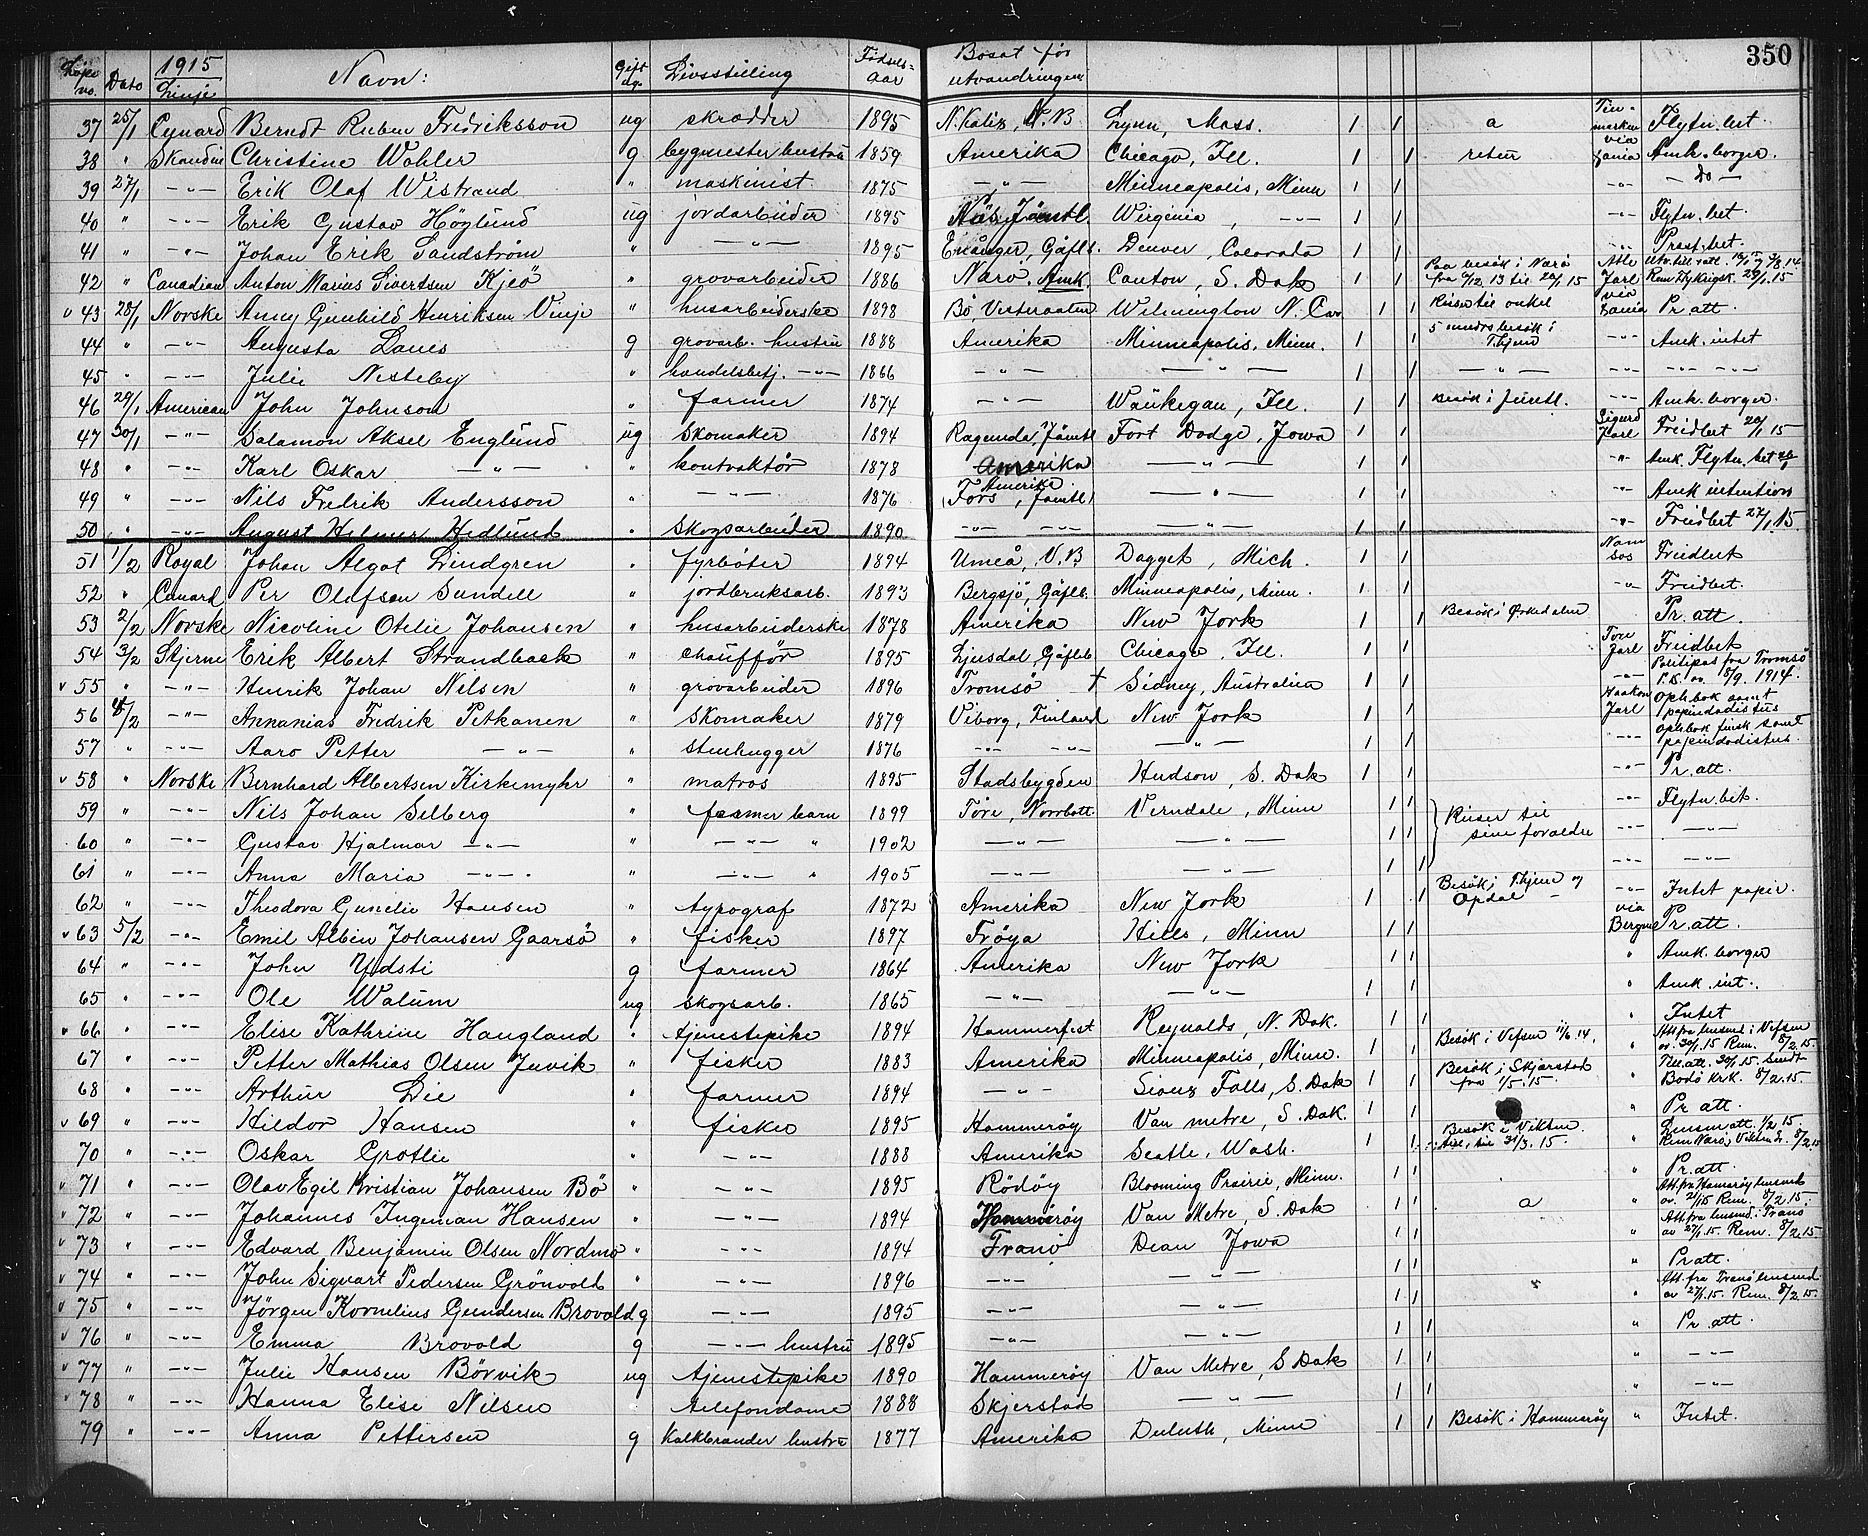 350
Løpe no. Dato 1915 Linje Navn: Gift ug. Livsstilling Fødsels-aar Bosat før utvandringen
37 25/1 Cunard Berndt Ruben Fredriksson ug skrædder 1895 N. Kalix, N.B Lynn, Mass. 1 1 a Flytn. bet.
38 " Skandin Christine Wohler g bygmester hustru 1859 Amerika Chicago, Ill. 1 1 retur via Zania Amk. borger.
39 27/1 -"- Erik Olaf Wistrand " maskinist 1875 -"- Minneapolis, Minn 1 1 -"- - Do -
40 " -"- Erik Gustav Höglund ug jordarbeider 1895 Näs, Jämtl. Wirginia, -"- 1 1 -"- Flytn. bet.
41 " -"- Johan Erik Sandström " -"- 1895 Enånger, Gäflb. Denver, Cocorado 1 1 -"- Præst. bet.
42 " Canadian Anton Marius Sivertsen Kjeö " grovarbeider 1886 Nærö. Amk. Canton, S. Dak 1 1 Paa besök i Nærö fra 6/12 13 til 20/1 15 Atle Jarl
v 43 28/1 Norske Anny Gunhild Henriksen Vinje " husarbeiderske 1898 Bö Vesteraalen Wilmington N. Car 1 1 Reiser til onkel via Zania Pr att.
44 " -"- Augusta Lanes g grovarb. hustru 1888 Amerika Minneapolis, Minn. 1 1 5 mdrs besök i T.hjem -"- Amk. intet
45 " -"- Julie Nesteby " handelsbetj. -"- 1866 -"- -"- 1 1 -"- -"- -"-
46 29/1 American John Johnson " farmer 1874 -"- Waukegan, Ill. 1 1 Besök i Jämtl. -"- Amk. borger.
47 30/1 -"- Salamon Aksel Englund ug skomaker 1894 Ragunda, Jämtl Fort Dodge, Jowa 1 1 Sigurd Jarl Freidbet 20/1 15
48 " -"- Karl Oskar -"- " kontraktör 1878 Amerika -"- 1 1 -"- Amk. Flytn. bet
49 " -"- Nils Fredrik Andersson " -"- 1876 Amerika (Fors, Jämtl) -"- 1 1 -"- Amk intention
50 " -"- August Helmer Hedlund " Skogsarbeider 1890 -"- -"- -"- 1 1 -"- Freidbet 27/1 15
51 1/2 Royal Johan Algot Lindgren " fyrböter 1894 Umeå, V.B Dagget, Mich. 1 1 Namsos Freidbet
52 " Cunard Per Olofsen Sundell " jordbruksarb. 1893 Bergsjö, Gäflb. Minneapolis, Minn. 1 1 -"- Freidbet.
53 2/2 Norske Nicoline Otelie Johansen " husarbeiderske 1878 Amerika New York 1 1 Besök i Orkedalen Pr. att.
54 3/2 Stjerne Erik Albert Strandback " chaufför 1895 Ljusdal, Gäflb Chicago, Ill. 1 1 Tore Jarl Freidbet
v 55 " -"- Henrik Johan Nilsen " grovarbeider 1896 Tromsö † Sidney, Australien 1 1 -"- Politipas fra Tromsö P.K. av 15/9. 1914.
56 4/2 -"- Annanias Fredrik Petkanen " skomaker 1879 Viborg, Finland New York 1 1 Haakon Jarl Opl. bok samt
57 " -"- Aaro Petter -"- " stenhugger 1876 -"- -"- -"- 1 1 -"- Opl. bok finsk samt
v 58 " Norske Bernhard Albertsen Kirkemyhr " matros 1895 Stadsbygden Hudson, S. Dak 1 1 -"- Pr. att.
59 " -"- Nils Johan Selberg " farmer barn 1899 Töre, Norrbott. Verndale, Minn 1 1 Reiser til sine foræidre -"- Flytn. bet.
60 " -"- Gustav Hjalmar -"- " -"- " 1902 -"- -"- 1 1 -"- -"-
61 " -"- Anna Maria -"- " -"- " 1905 -"- -"- 1 1 -"- -"-
62 " -"- Theodora Gunelie Hansen " typograf 1872 Amerika New York 1 1 Besök i T.hjem og Opdal -"- Intet papir.
v 63 5/2 -"- Emil Albin Johansen Gaarsö " fisker 1897 Fröya Hills, Minn 1 1 via Bergen Pr. att.
64 " -"- John Ydsti g farmer 1864 Amerika New York 1 1 " Amk. borger
65 " -"- Ole Walum ug skogsarb. 1865 -"- -"- 1 1 " Amk. int.
v 66 " -"- Elise Kathrine Haugland " tjenestepike 1894 Hammerfest Reynolds, N. Dak. 1 1 " Intet
67 " -"- Petter Mathias Olsen Juvik " fisker 1883 Amerika Minneapolis, Minn. 1 1 Besök i Vefsen 11/6 14. " Att. fra lensmd i Vefsen av. 30/1 15 Rem. 8/2.15.
68 " -"- Arthur Lie " farmer 1894 -"- Sioux Falls, S. Dak 1 1 Besök i Skjerstad fra 1/5. 15. " Bodö Krk. 8/2.15.
v 69 " -"- Hildor Hansen " fisker 1895 Hammeröy Van metre, S. Dak. 1 1 " Pr. att.
70 " -"- Oskar Grotlie " -"- 1888 Amerika Seatle, Wash. 1 1 Besök i Vikten. til 31/3. 15. " Lensm att. 1/2 15.
v 71 " -"- Olav Egil Kristian Johansen Bö " -"- 1895 Rödöy Blooming Prairie, Minn. 1 1 " Pr. att.
v 72 " -"- Johannes Ingeman Hansen " -"- 1894 Hammeröy Van Metre, S. Dak 1 1 a " Att. fra Hamaröy lensmd av. 2/1 15 Rem. 8/2.15.
v 73 " -"- Edvard Benjamin Olsen Nordmo " -"- 1894 Tranö Dean Jowa 1 1 " Att. fra lensmd. i Tranö av 27/1.15. Rem. 8/2.15.
v 74 " -"- John Sigvart Pedersen Grönvold " -"- 1896 -"- -"- 1 1 " Pr att.
v 75 " -"- Jörgen Kornelius Gundersen Brovold g -"- 1895 -"- -"- 1 1 " Att. fra Tranö lensmd. av 27/1.15. Rem. 8/2.15.
v 76 " -"- Emma Brovold g -"- hustru 1895 -"- -"- 1 1 " Pr. att.
v 77 " -"- Julie Hansen Börvik ug tjenestepike 1890 Hammeröy Van Metre, S Dak 1 1 -"-
v 78 " -"- Hanna Elise Nilsen telefondame 1888 Skjerstad -"- 1 1 " -"-
79 " -"- Anna Pettersen g Kalkbrænder hustru 1877 Amerika Duluth, Minn 1 1 Besök i Hammeröy " Intet.